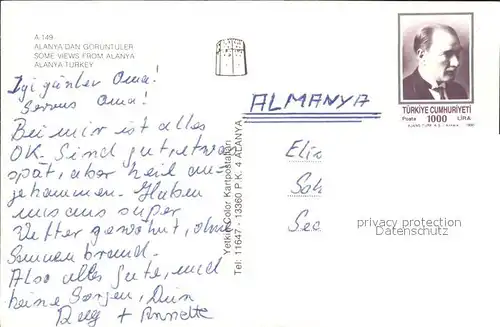 A-149
ALANYA'DAN GÖRÜNTÜLER
SOME VIEWS FROM ALANYA
ALANYA-TURKEY
İyi günler Oma!
Servus Oma!
Bei mir ist alles
OK. Sind gut, etwas
spät, aber heil an-
gekommen. Haben
uns ans super
Wetter gewöhnt, ohne
Sonnenbrand.
Also alles Gute, und
keine Sorgen, Dein
+ Annette
Yetkin Color Kartpostalları
Tel: 11647 - 13360 P.K. 4 ALANYA
ALMANYA
TÜRKİYE CUMHURİYETİ
Posta 1000 LİRA
Eliz
Sch
See
privacy protection
Datenschutz